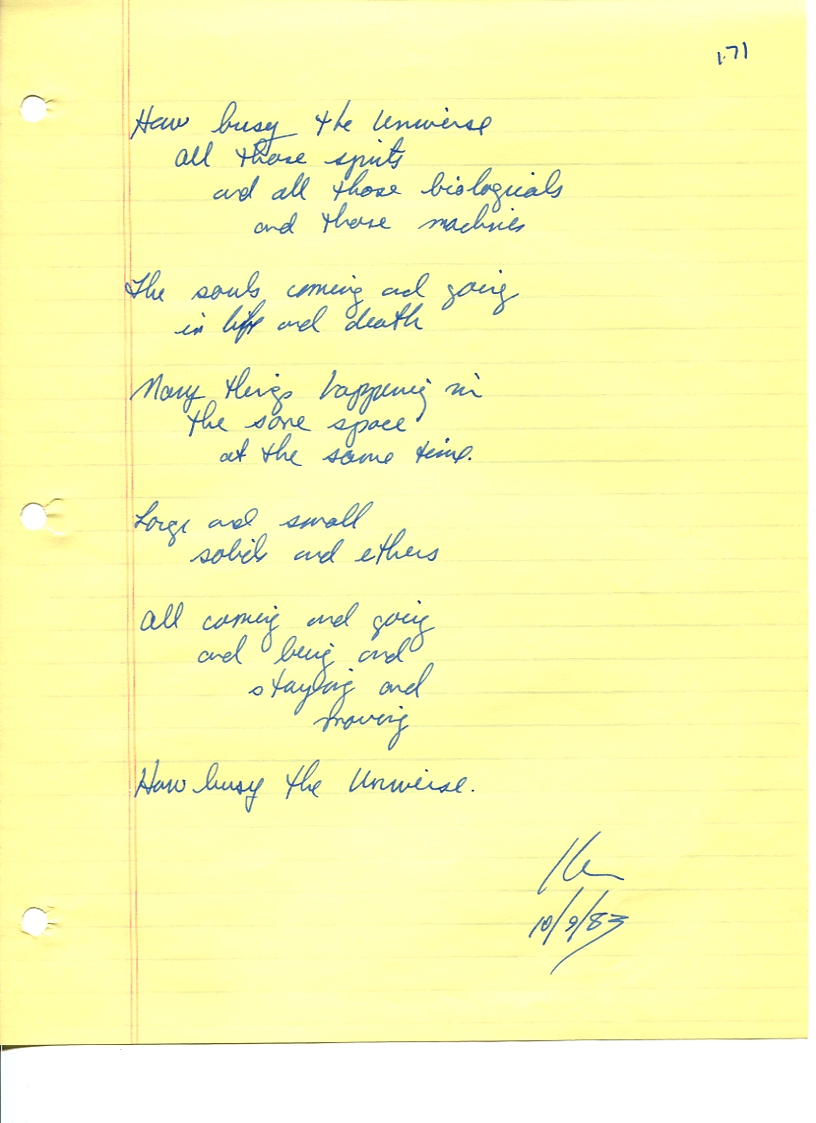 1.71
How busy the Universe
all those spirits
and all those biologicals
and those machines
The souls coming and going
in life and death
Many things happening in
the same space
at the same time.
Large and small
solids and ethers
All coming and going
and being and
staying and
moving
How busy the Universe.
Ken
10/9/83